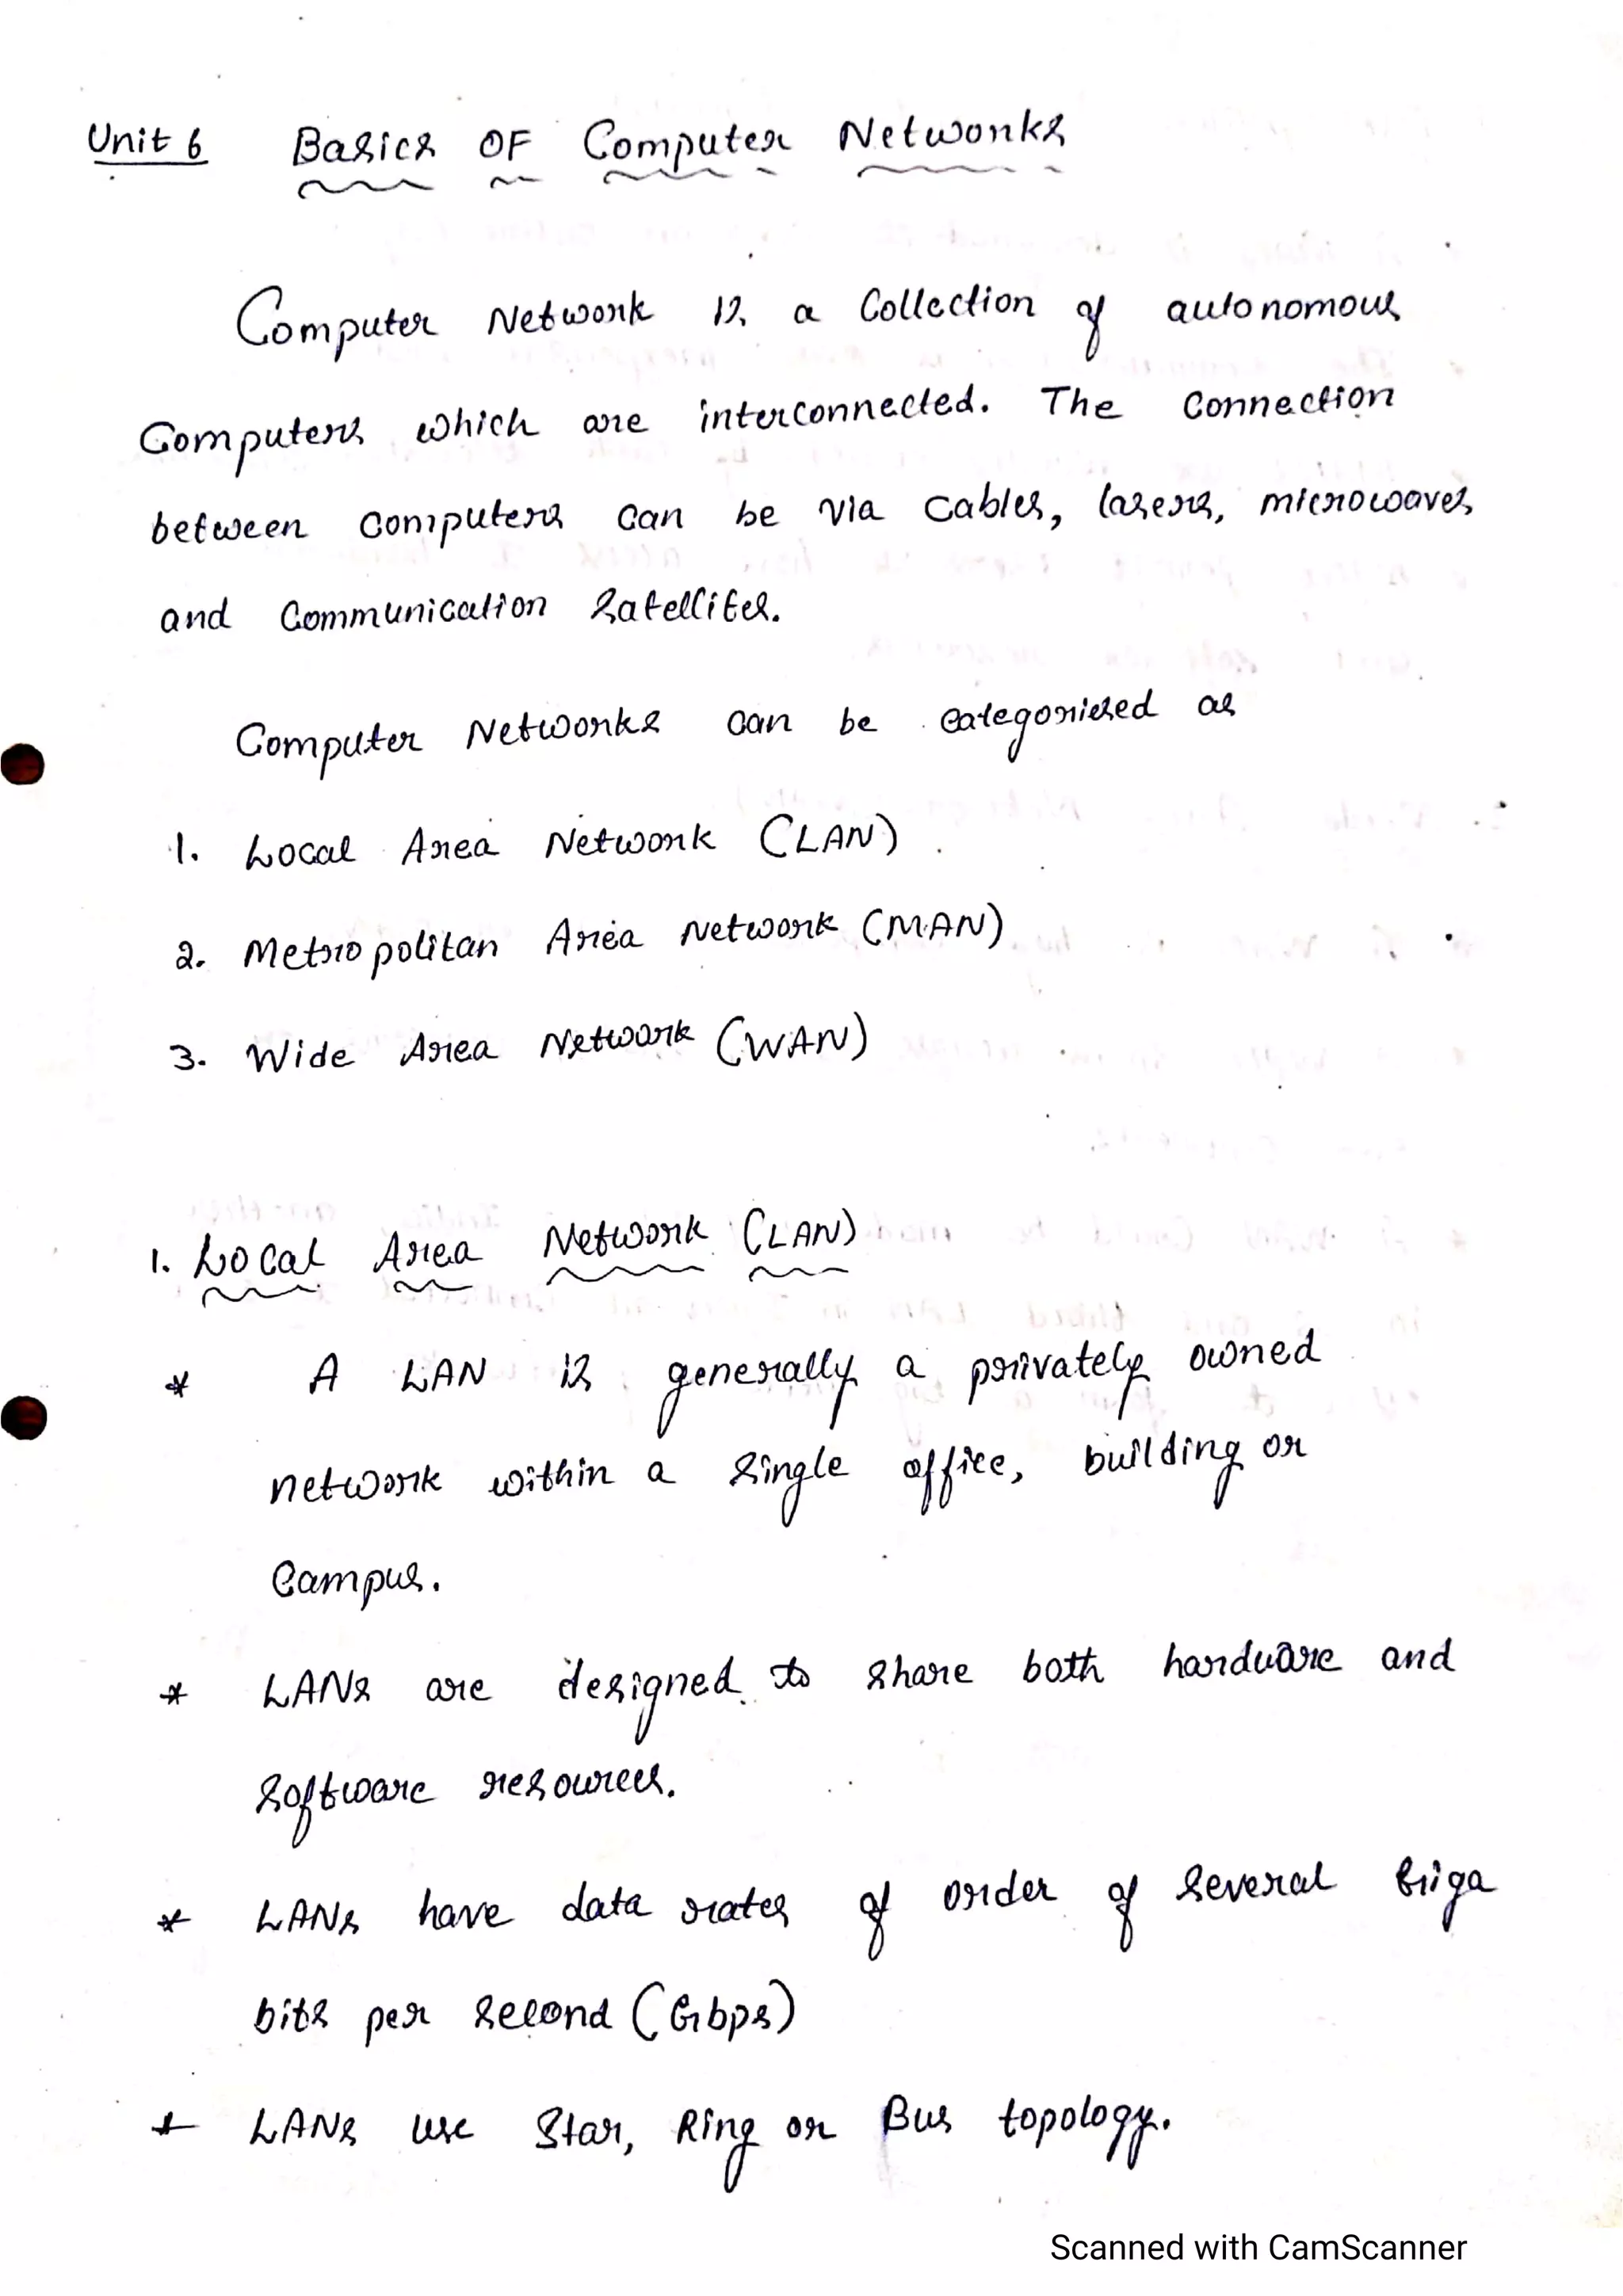 Unit 6 Basics OF Computer Networks
Computer Network is a Collection of autonomous
Computers which are interconnected. The Connection
between computers can be via cables, lasers, microwaves
and Communication Satellites.
Computer Networks can be categorised as
1. Local Area Network (LAN)
2. Metropolitan Area Network (MAN)
3. Wide Area Network (WAN)
1. Local Area Network (LAN)
* A LAN is generally a privately owned
network within a single office, building or
Campus.
* LANs are designed to share both hardware and
Software resources.
* LANs have data rates of order of several Giga
bits per second (Gbps)
* LANs use Star, Ring or Bus topology.
Scanned with CamScanner